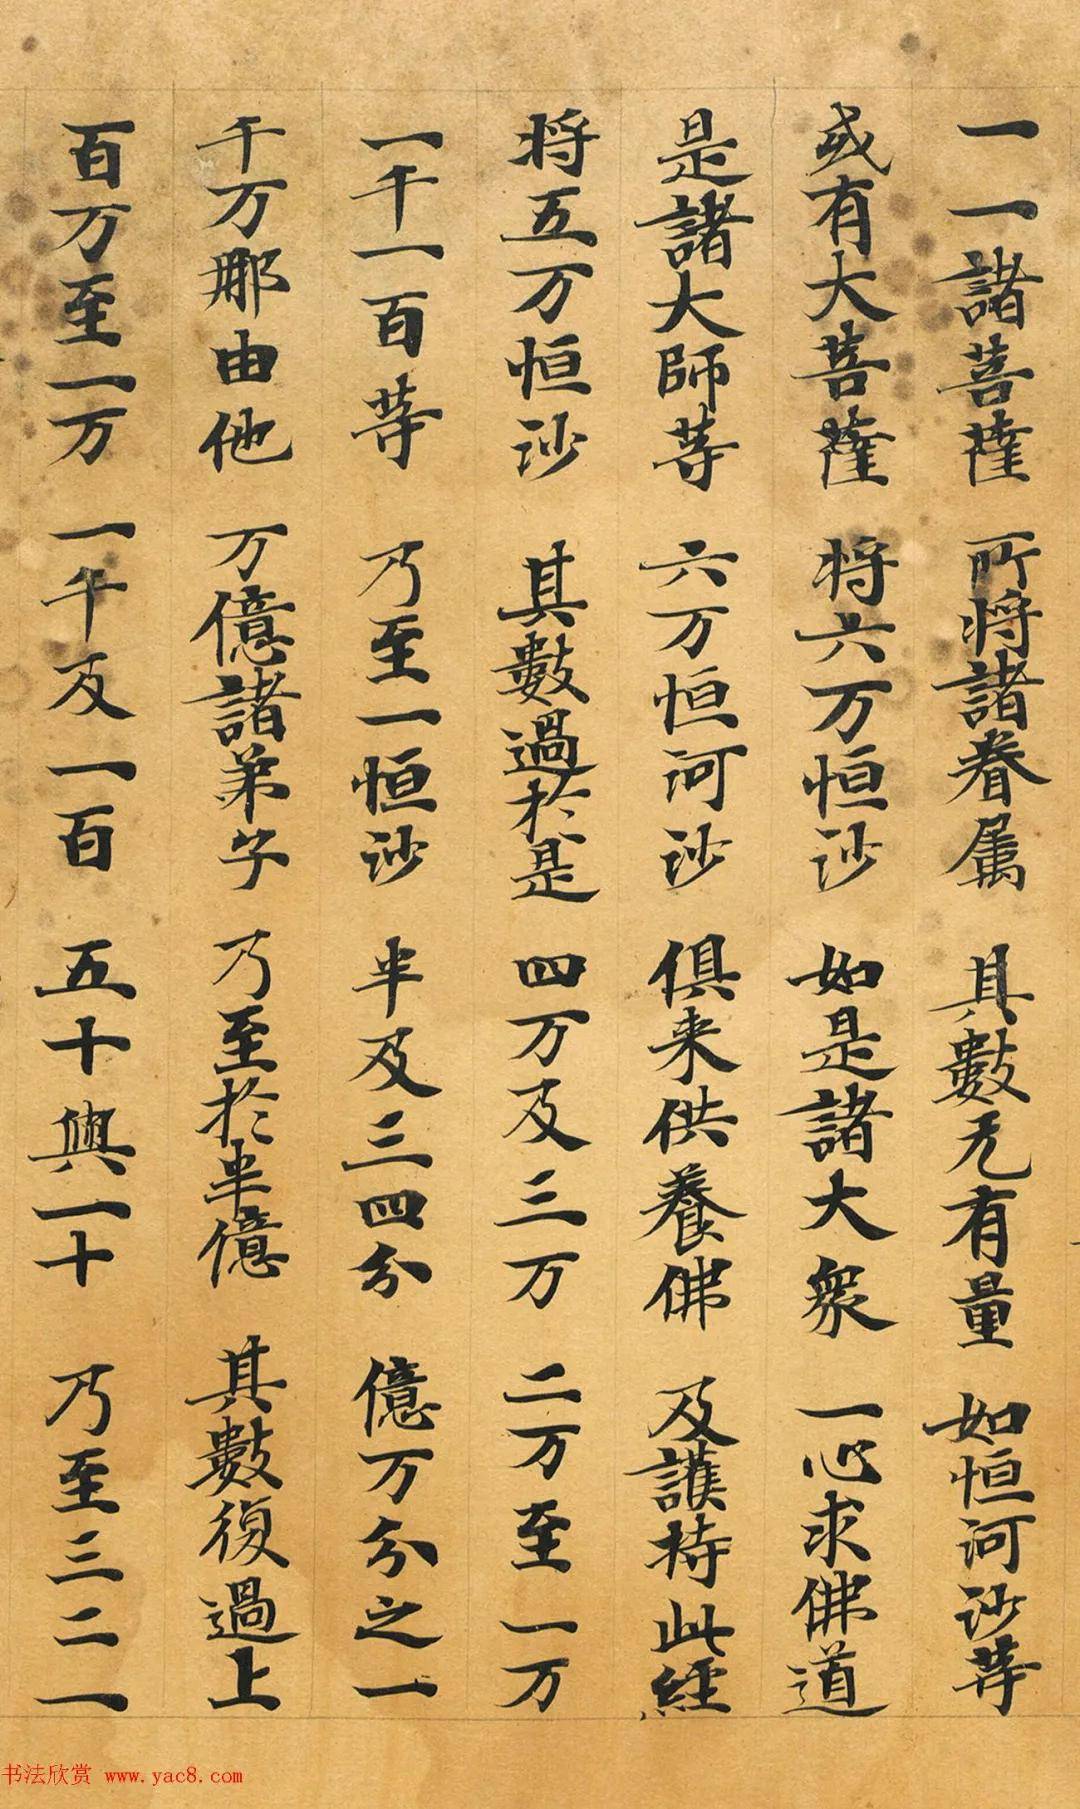 一一諸菩薩 所将諸眷属 其數无有量 如恒河沙䓁
或有大菩薩 将六万恒沙 如是諸大衆 一心求佛道
是諸大師䓁 六万恒河沙 俱来供養佛 及護持此經
将五万恒沙 其數過於是 四万及三万 二万至一万
一千一百䓁 乃至一恒沙 半及三四分 億万分之一
千万那由他 万億諸弟子 乃至於半億 其數復過上
百万至一万 一千及一百 五十與一十 乃至三二一
书法欣赏 www.yac8.com